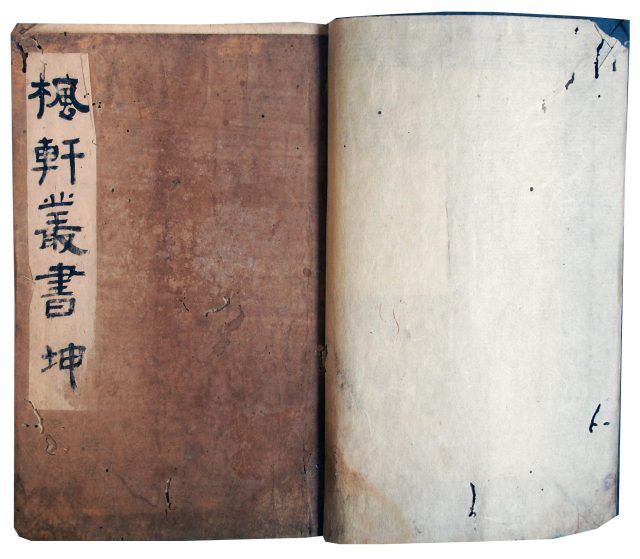 楓軒叢書 坤